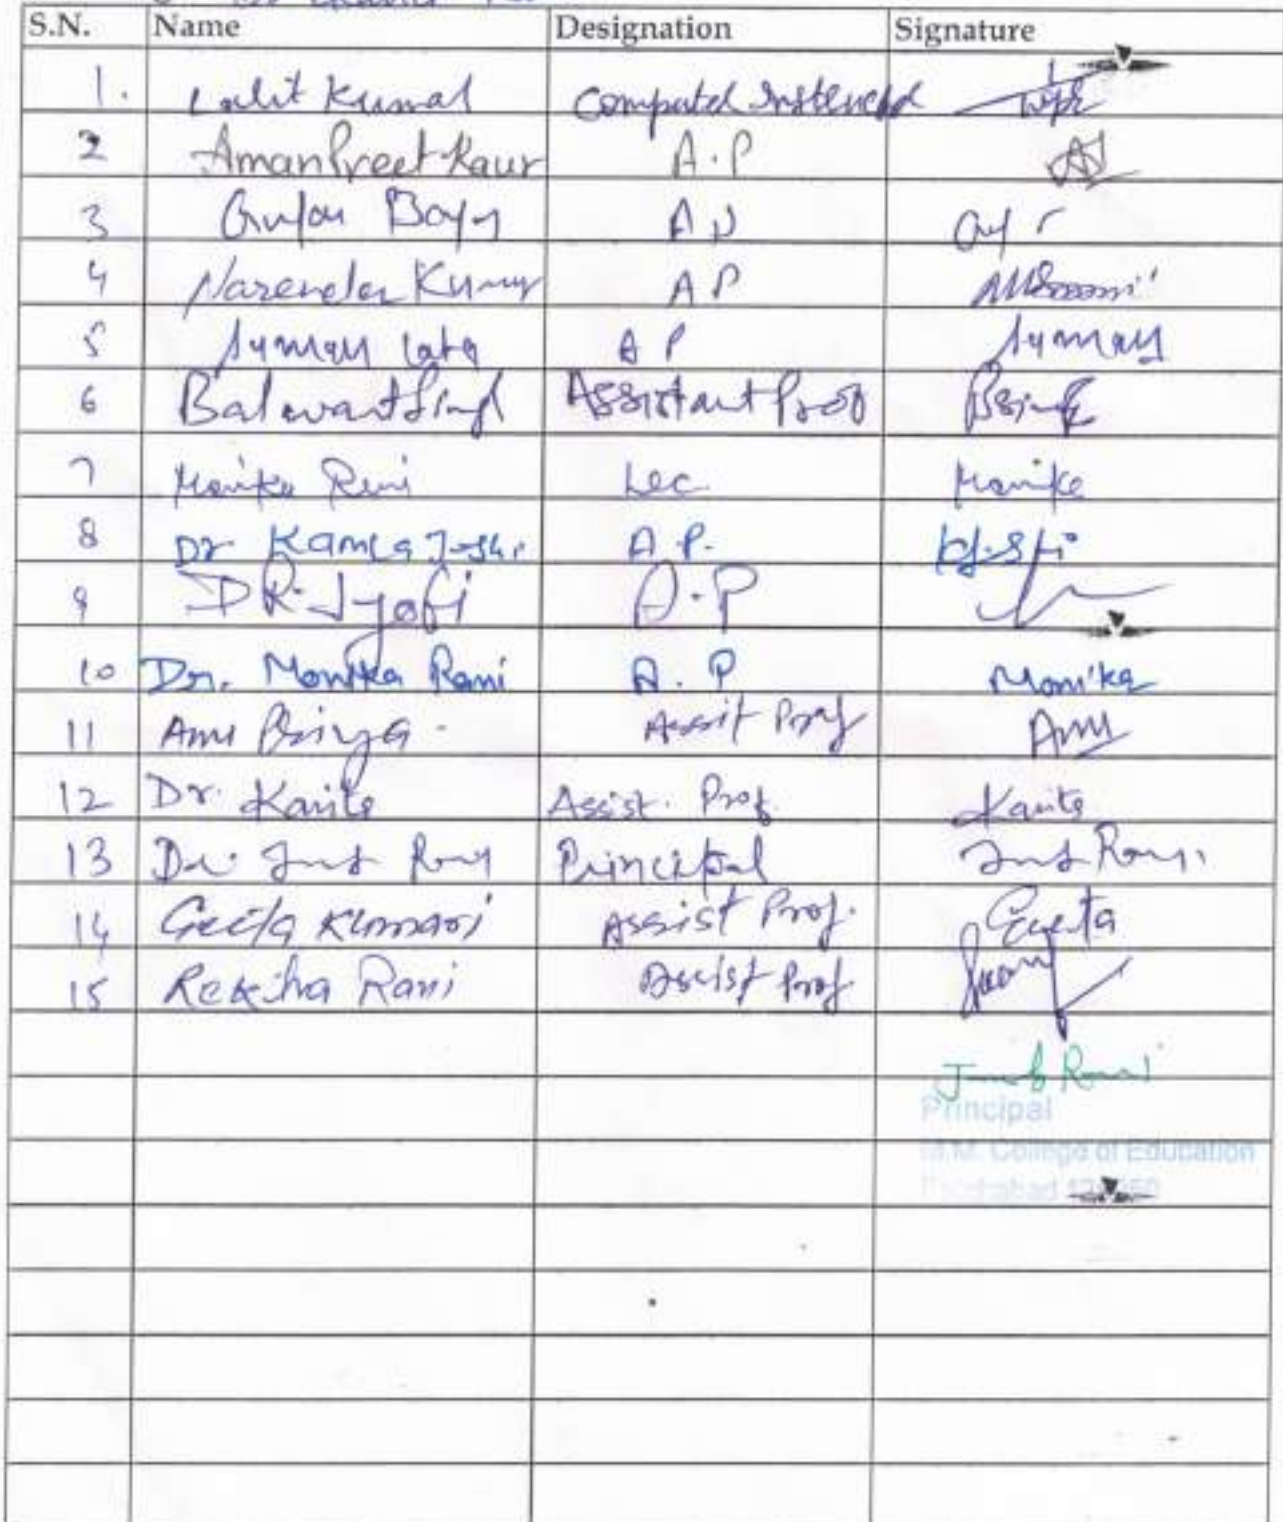 S.N. Name Designation Signature
1. Lalit Kumar Computer Instructor
2 AmanPreet Kaur A.P
3 A P
4 Narender Kumar A P
5 Suman Lata A P Suman
6 Balwant Singh Assistant Prof BSingh
7 Monika Rani Lec. Monika
8 Dr Kamla Joshi A.P.
9 DR. Jyoti A.P
10 Dr. Monika Rani A. P Monika
11 Anu Priya. Assit Prof Anu
12 Dr. Kavita Assist. Prof. Kavita
13 Dr. Rani Principal Rani
14 Geeta Kumari Assist Prof. Geeta
15 Rekha Rani Assist Prof.
Rani
Principal
M.M. College of Education